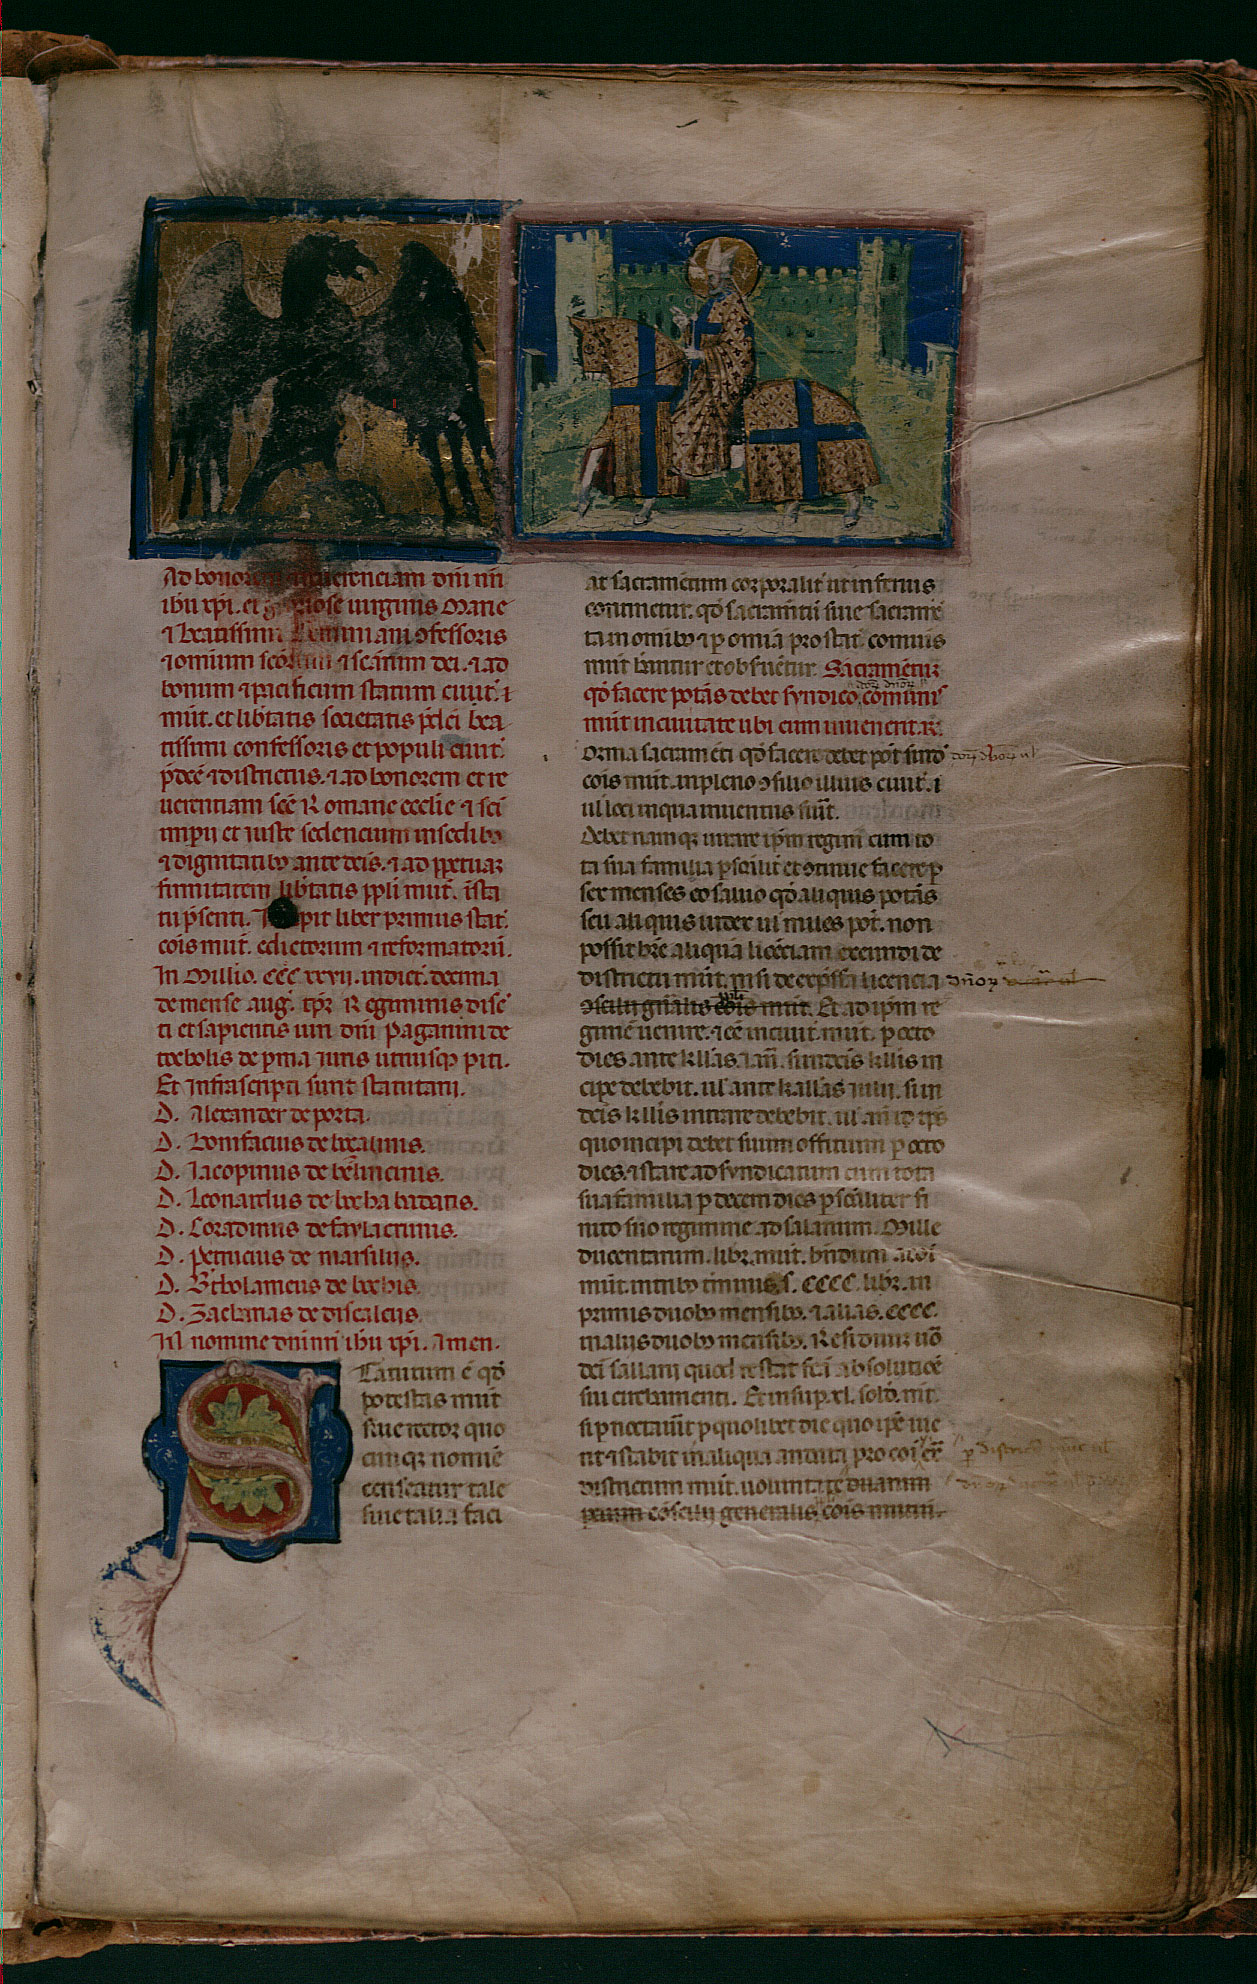 Ad honorem et reuerenciam dñi nr̃i
ihũ xp̃i. et gloriose uirginis Marie
⁊ beatissimi Geminiani ↄfessoris
⁊ omnium sc̃orum ⁊ sc̃arum dei. ⁊ ad
bonum ⁊ pacificum statum ciuit̃. ⁊
mut̃. et lib̃tatis societatis p̃dc̃i bea
tissimi confessoris et populi ciuit̃.
p̃dcẽ ⁊ districtus. ⁊ ad honorem et re
uerentiam scẽ Romane ecclie ⁊ sc̃i
imp̃ij et iuste sedencium in sedibꝫ
⁊ dignitatibꝫ ante dc̃is. ⁊ ad ppetuaꝫ
firmitatem lib̃tatis ppli mut̃. ista
tu p̃senti. pit liber primus stat̃.
cõis mut̃. edictorum ⁊ reformatorũ.
In Millio. ccc xxvij. indict̃. decima
de mense aug̃. tp̃r Regiminis disc̃
ti et sapientis uiri dñi Paganini de
de p̃ma iuris utriusqꝫ p̃iti.
Et Infrascripti sunt statutarij.
D. Alexander de porta.
D. Bonifacius de
D. Iacopinus de
D. Leonardus de becha badatis.
D. Coradinus de
D. Petricius de marsilijs.
D. Bt̃holameus de bechis.
D. Zacharias de discalcijs.
In nomine dñi nr̃i ihũ xp̃i. Amen.
Statutum ẽ qđ
potestas mut̃
siue rector quo
cũqꝫ nomiẽ
censeatur tale
siue talia faci
at sacramẽtum corporalit̃ ut inferius
continetur. qđ sacramẽtũ siue sacramẽ
ta in omĩbꝫ ⁊ p omĩa pro stat̃ comũis
mut̃ ⁊ obſuẽtur. Sacramẽtuꝫ
qđ facere potãs debet syndico comunis
mut̃ in ciuitate ubi eum inuenerit. R.
Orma sacramẽti qđ facere debet põt sindõ
cõis mut̃. in pleno ↄsilio illius ciuit̃. ⁊
ul loci in qua inuentus fũit.
Debet namqꝫ iurare ip̃m regim̃ cum to
ta sua familia p̃scilit̃ et ↄtinue facere p
sex menses eo saluo qđ aliquis potãs
seu aliquis iudex ul miles pot̃. non
possit hr̃e aliquã licẽciam exeundi de
districtu mut̃. nisi de exp̃ssa licencia
ↄscilij gñalis cõis mut̃. Et ad ip̃m re
gimẽ uenire. ⁊ eẽ in ciuit̃ mut̃. p octo
dies ante kl̃las. Ian̄. si in dc̃is kl̃lis in
cipe debebit. ul ante kallãs iulij. si in
dc̃is kl̃lis intrare debebit. ul añ id tp̃s
quo incipi debet suum offitium p octo
dies. ⁊ stare ad syndicatum cum tota
sua familia p decem dies p̃scĩaliter fi
nito suo regimine ad salarium. Mille
ducentarum. libr̃. mut̃.
mut̃. in tribꝫ t̃minis. s̃. cccc. libr̃. in
primis duobꝫ mensibꝫ. ⁊ alias. cccc.
in alijs duobꝫ mensibꝫ. Residuuꝫ uõ
dc̃i sallarij quod restat fc̃i absolutiõẽ
sui Et insup. xl. sold̃. mt̃.
si p̃noctaũit p quolibet die quo ip̃e iue
rit ⁊ stabit in aliqua andata pro cõi ext̃
districtum mut̃. uoluntate duarum
parcium cõscilij generalis cõis mutin̄.